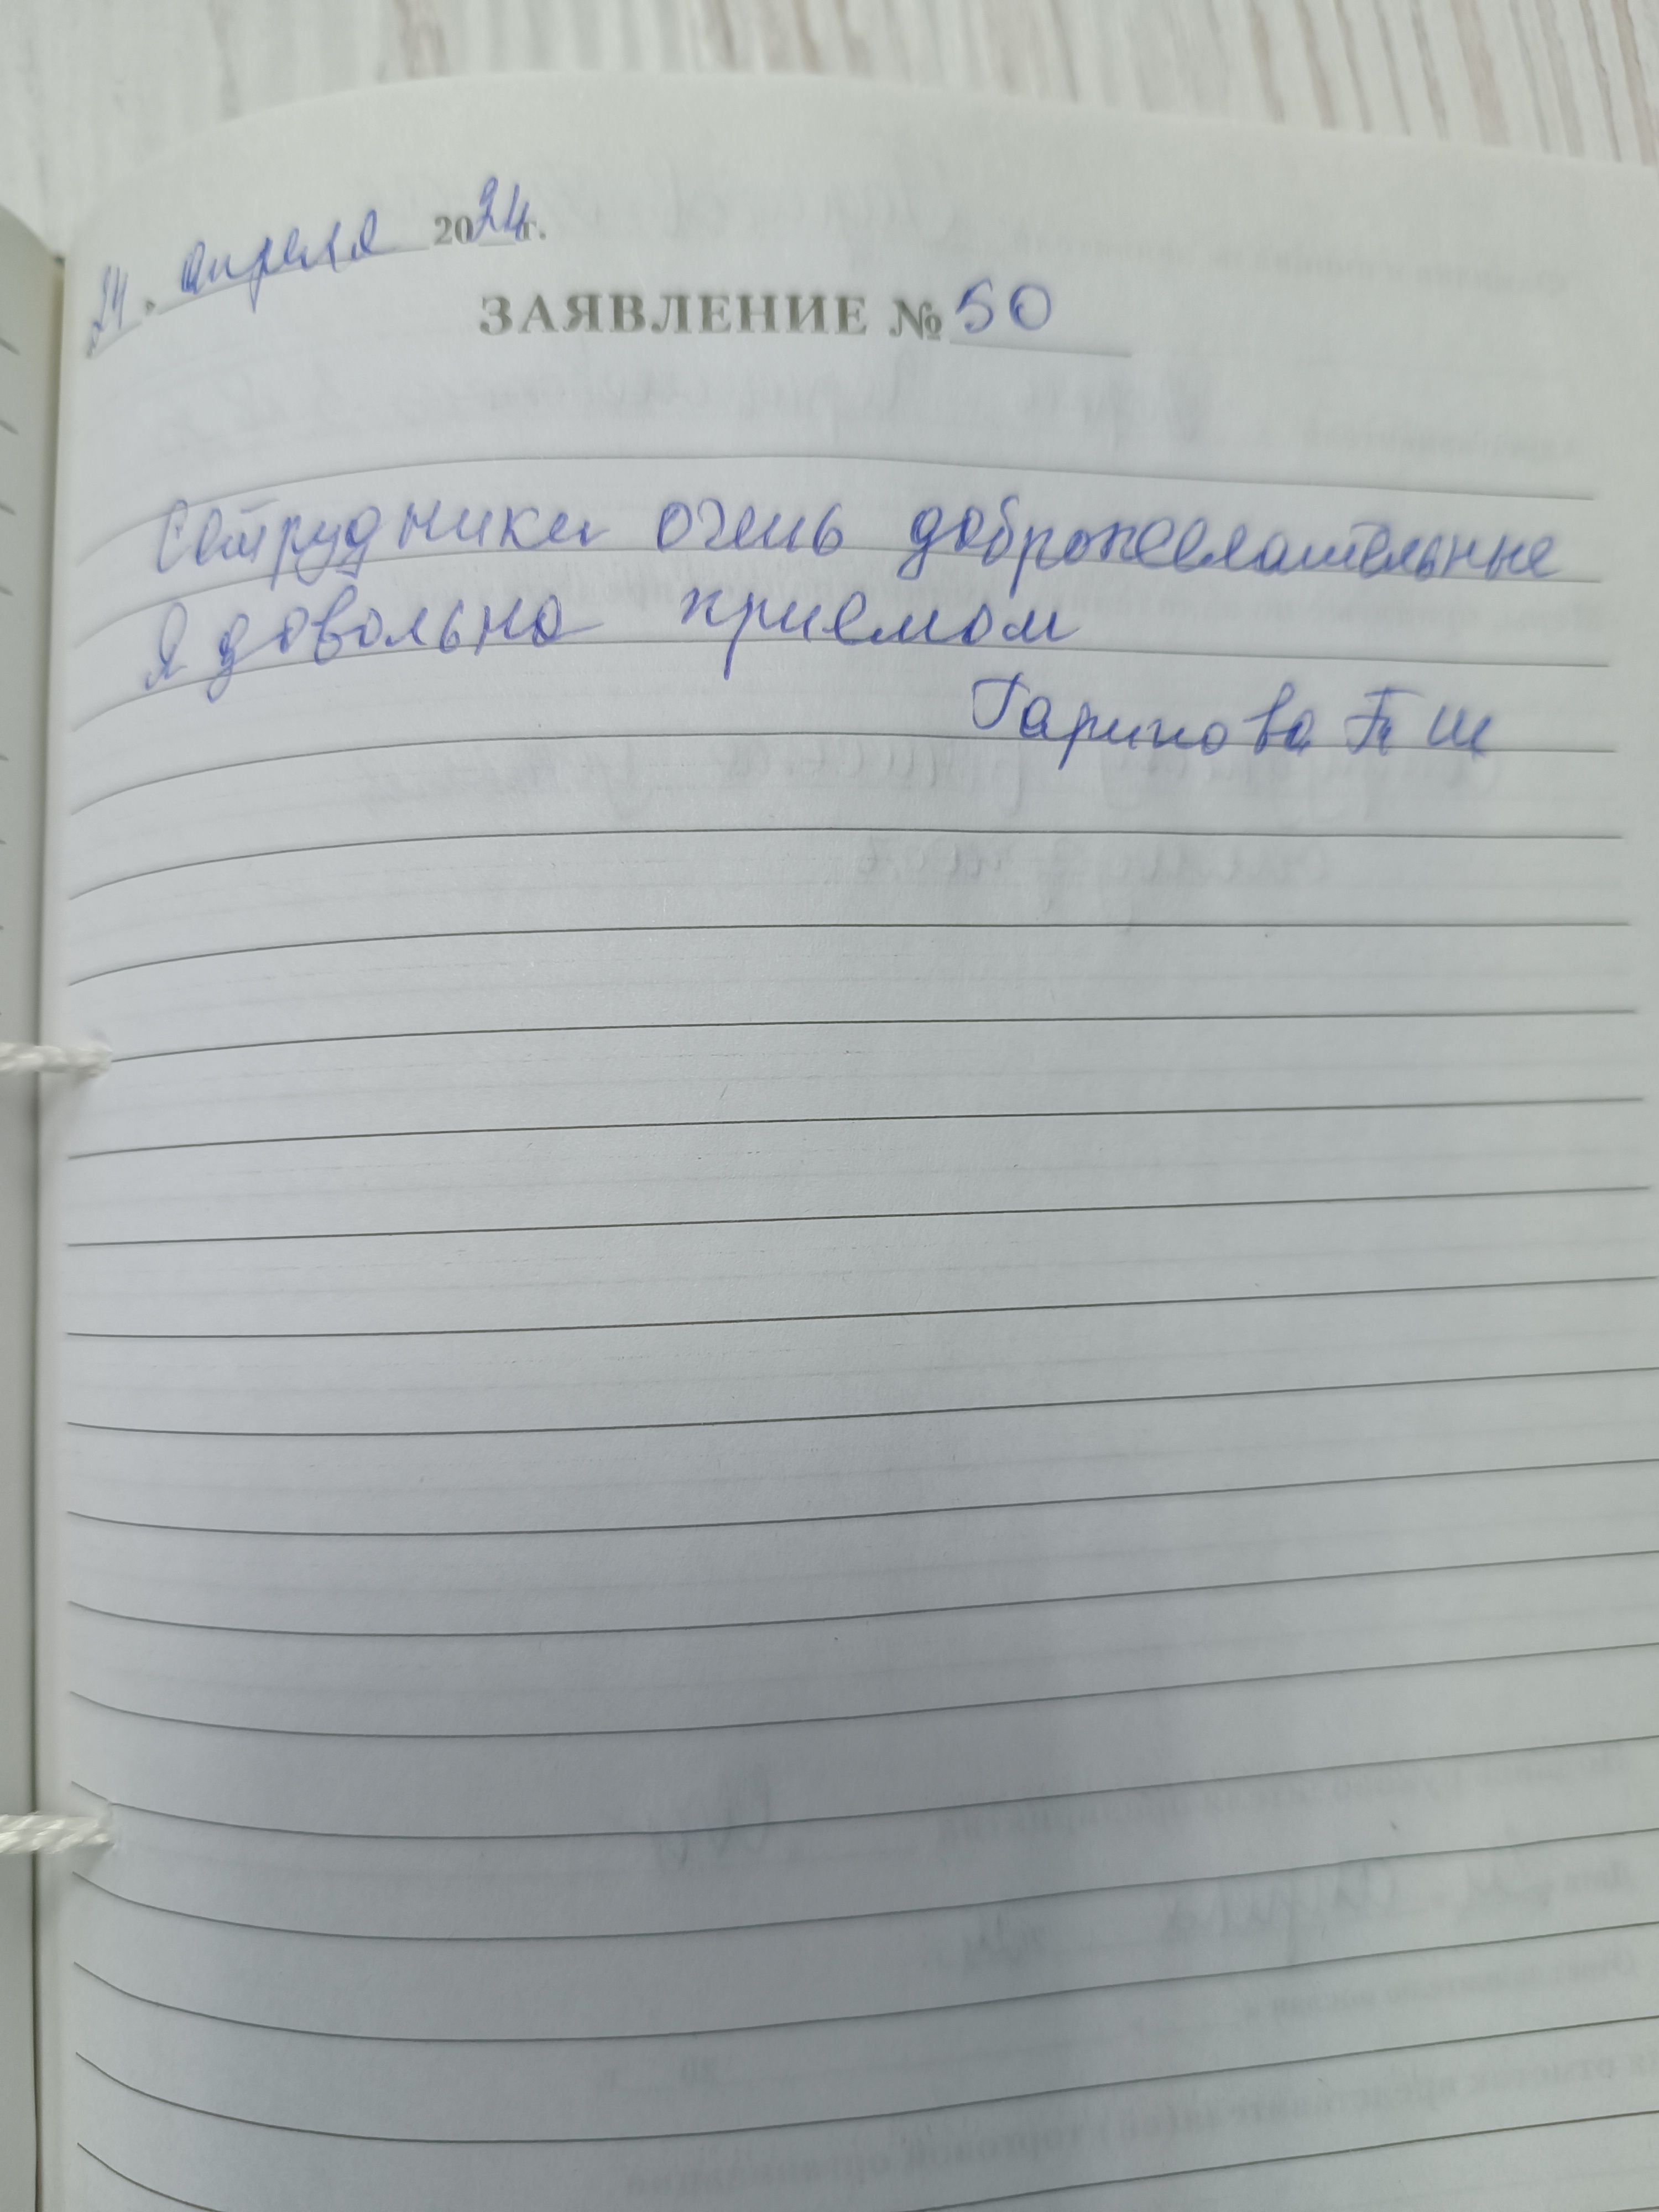 24. апреля 2024 г.
ЗАЯВЛЕНИЕ № 50
Сотрудники очень доброжелательные
Я довольна приемом
Гарипова Г. Ш